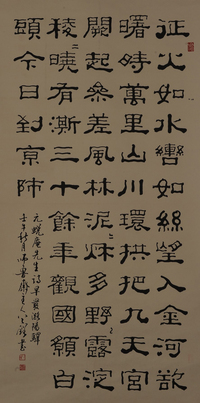 征衣如水轡如絲望入金河欲
曙時萬里山川環拱把九天宮
闕起參差風林泥多野露淀
稜曉有澌三十餘年觀國願白
頭今日到京師
元先生詩早發灤陽驛
壬午秋月齋主人書